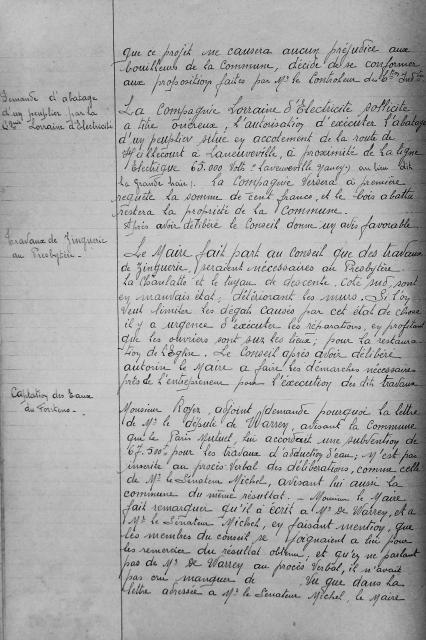 que ce projet ne causera aucun préjudice aux
bouilleurs de la Commune, décide de se conformer
aux proposition faites par Mr le Controleur des Ctions Indtes
Demande d'abatage
d'un peuplier par la
Cie Lorraine d'Electricité
La Compagnie Lorraine d'Electricité sollicite
a titre onéreux, l'autorisation d'exécuter l'abatage
d'un peuplier situé en accotement de la route de
à Laneuveville, à proximité de la ligne
Electrique 65.000 Volts (Laneuveville Nancy) au lieu dit
la Grande haie. La Compagnie versera à première
requête la somme de cent francs, et le bois abattu
restera la propriété de la Commune.
Après avoir délibéré le Conseil donne un avis favorable
Travaux de Zinguerie
au Presbytère.
Le Maire fait part au Conseil que des travaux
de Zinguerie, seraient nécessaires au Presbytère
la Chanlatte et le tuyau de descente, coté sud sont
en mauvais état, détériorant les murs. Si l'on
veut limiter les dégats causés par cet état de chose
il y a urgence d'exécuter les réparations, en profitant
que les ouvriers sont sur les lieux, pour la restaura-
tion de l'Eglise. Le Conseil après avoir délibéré
autorise le Maire a faire les démarches nécessaires
près de l'entrepreneur pour l'éxécution des dits travaux
Captation des Eaux
du
Monsieur Royer, adjoint, demande pourquoi la lettre
de Mr le député de Warren, avisant la Commune
que le Paris Mutuel, lui accordait une subvention de
67.500f pour les travaux d'adduction d'eau; n'est pas
inscrite au procès Verbal des délibérations, comme celle
de Mr le Sénateur Michel, avisant lui aussi la
commune du même résultat. - Monsieur le Maire
fait remarquer qu'il a écrit a Mr de Warren, et a
Mr le Sénateur Michel, en faisant mention, que
les membres du conseil se joignaient a lui pour
les remercier du résultat obtenu, et qu'en ne parlant
pas de Mr de Warren au procès Verbal, il n'avait
pas cru manquer de Vu que dans la
lettre adressée a Mr le Sénateur Michel, le Maire